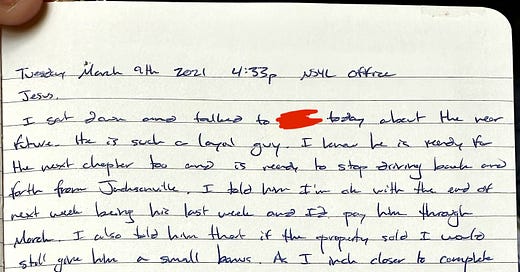 Tuesday March 9th 2021 4:33p NSYL Office
Jesus.
I sat down and talked to today about the near
future. He is such a loyal guy. I know he is ready for
the next chapter too and is ready to stop driving back and
forth from Jacksonville. I told him I'm ok with the end of
next week being his last week and I'd pay him through
March. I also told him that if the property sold I would
still give him a small bonus. As I inch closer to complete